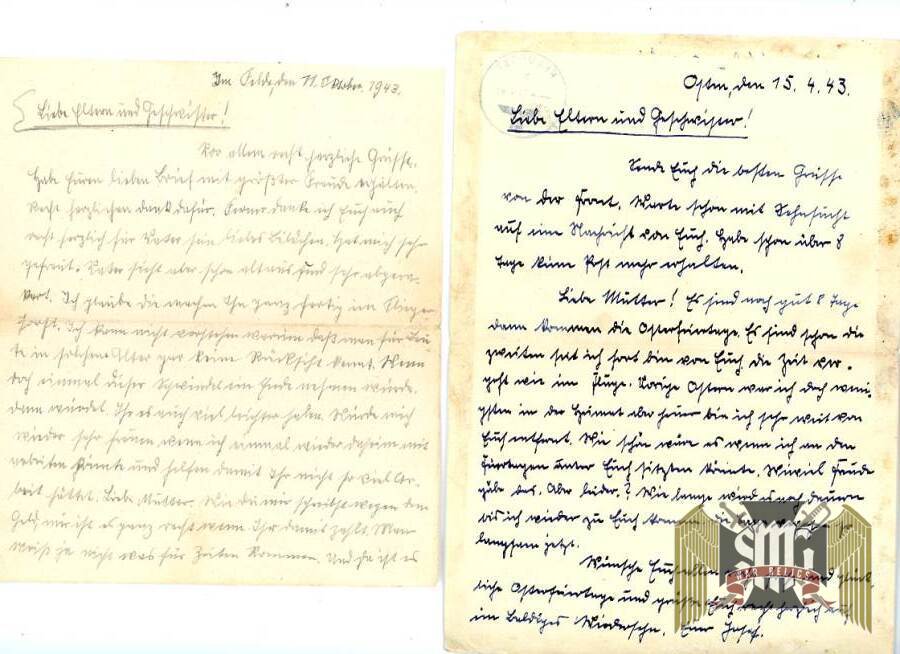 Im Felde, den 11. Oktober 1943.
Liebe Eltern und Geschwister!
Vor allem recht herzliche Grüsse.
Habe Euren lieben Brief mit größter Freude erhalten.
Recht herzlichen dank dafür. Ferner danke ich Euch auch
recht herzlich für Vater sein liebes Bildchen. Hat mich sehr
gefreut. Vater sieht aber schon alt aus und sehr abgema-
gert. Ich glaube die machen Ihn ganz fertig im
Ich kann nicht verstehen warum daß man für Leu-
te in solchem Alter gar keine Rücksicht kennt. Wenn
doch einmal dieser Schwindel ein Ende nehmen würde.
dann würdet Ihr es auch viel leichter haben. Würde mich
wieder sehr freuen wenn ich einmal wieder daheim mit
arbeiten könnte und helfen damit Ihr nicht so viel Ar-
beit hättet. Liebe Mutter. Wie du mir schreibst wegen dem
Geld, mir ist es ganz recht wenn Ihr damit zahlt. Man
weiß ja nicht was für Zeiten kommen. Und da ist es
Osten, den 15. 4. 43.
Liebe Eltern und Geschwister!
Sende Euch die besten Grüsse
von der Front. Warte schon mit Sehnsucht
auf eine Nachricht von Euch. Habe schon über 8
Tage keine Post mehr erhalten.
Liebe Mutter! Es sind noch gut 8 Tage
dann kommen die Osterfeiertage. Es sind schon die
zweiten seit ich fort bin von Euch. die Zeit ver-
geht wie im Fluge. Vorige Ostern war ich doch weni-
gsten in der Heimat aber heuer bin ich sehr weit von
Euch entfernt. Wie schön wäre es wenn ich an den
Feiertagen unter Euch sitzten könnte. Wieviel Freude
gäbe das. Aber leider.? Wie lange wird es noch dauern
bis ich wieder zu Euch komme.
langsam jetzt.
Wünsche Euch allen und glück-
liche Osterfeiertage und grüße Euch recht herzlich auf
ein baldiges Wiedersehn. Euer Josef.
SMG
WAR RELICS